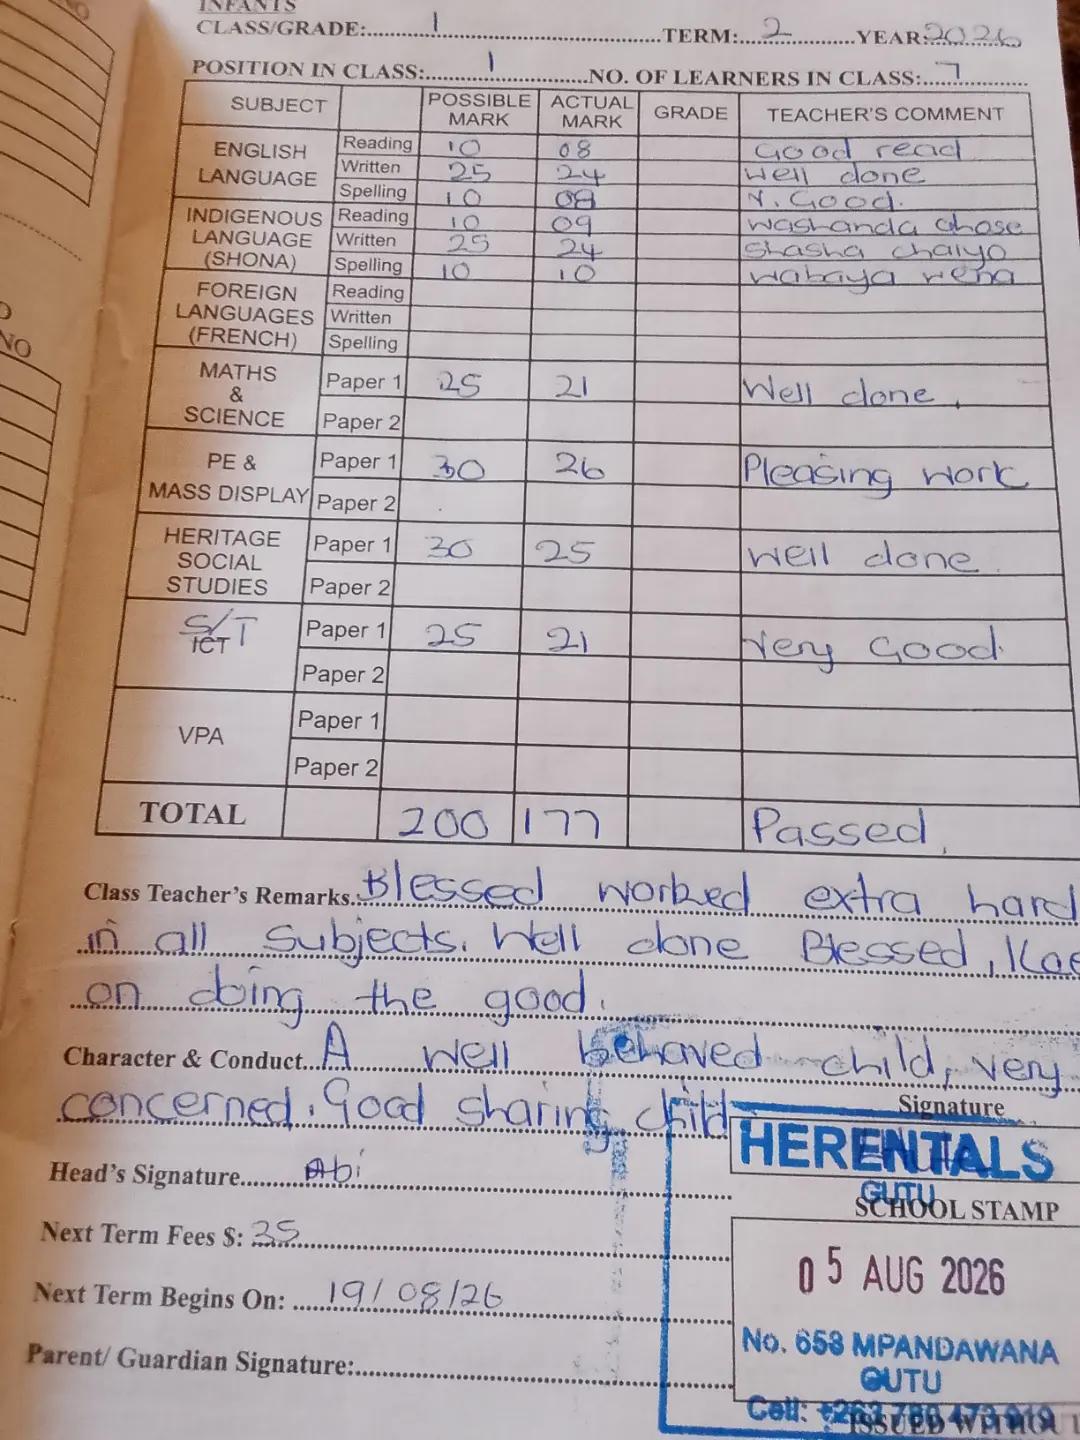 INFANTS
CLASS/GRADE: 1 TERM: 2 YEAR: 2026
POSITION IN CLASS: 1 NO. OF LEARNERS IN CLASS: 7
SUBJECT POSSIBLE MARK ACTUAL MARK GRADE TEACHER'S COMMENT
ENGLISH LANGUAGE Reading 10 08 Good read
Written 25 24 Well done
Spelling 10 09 V. Good.
INDIGENOUS LANGUAGE (SHONA) Reading 10 09 Washanda chose
Written 25 24 Shasha chaiyo
Spelling 10 10 Wabaya wena
FOREIGN LANGUAGES (FRENCH) Reading
Written
Spelling
MATHS & SCIENCE Paper 1 25 21 Well done.
Paper 2
PE & MASS DISPLAY Paper 1 30 26 Pleasing work
Paper 2
HERITAGE SOCIAL STUDIES Paper 1 30 25 Well done.
Paper 2
S/T ICT Paper 1 25 21 Very Good.
Paper 2
VPA Paper 1
Paper 2
TOTAL 200 177 Passed.
Class Teacher's Remarks. Blessed worked extra hard
in all subjects. Well done Blessed,
on doing the good.
Character & Conduct... A well behaved child, very
concerned. Good sharing child
Signature
HERENTALS
GUTU
SCHOOL STAMP
Head's Signature
Next Term Fees $: 35
05 AUG 2026
Next Term Begins On: 19/08/26
No. 653 MPANDAWANA
GUTU
Parent/ Guardian Signature:
Cell: +263 780 473 919
ISSUED WITHOU
NO
NO